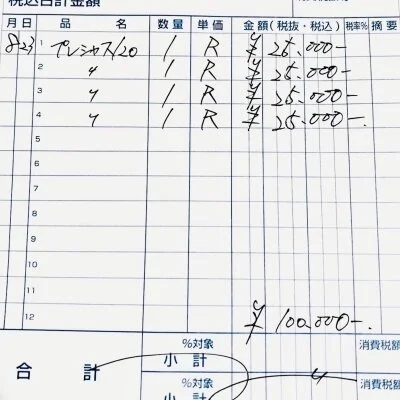 税込合計金額
月 日 品名 数量 単価 金額(税抜・税込) 税率% 摘要
8 23 1 プレシャス/20 1 R ¥25.000-
2 〃 1 R ¥25.000-
3 〃 1 R ¥25.000-
4 〃 1 R ¥25.000-.
5
6
7
8
9
10
11
12 ¥100.000-.
合計 %対象 小計 消費税額
%対象 小計 〃 消費税額